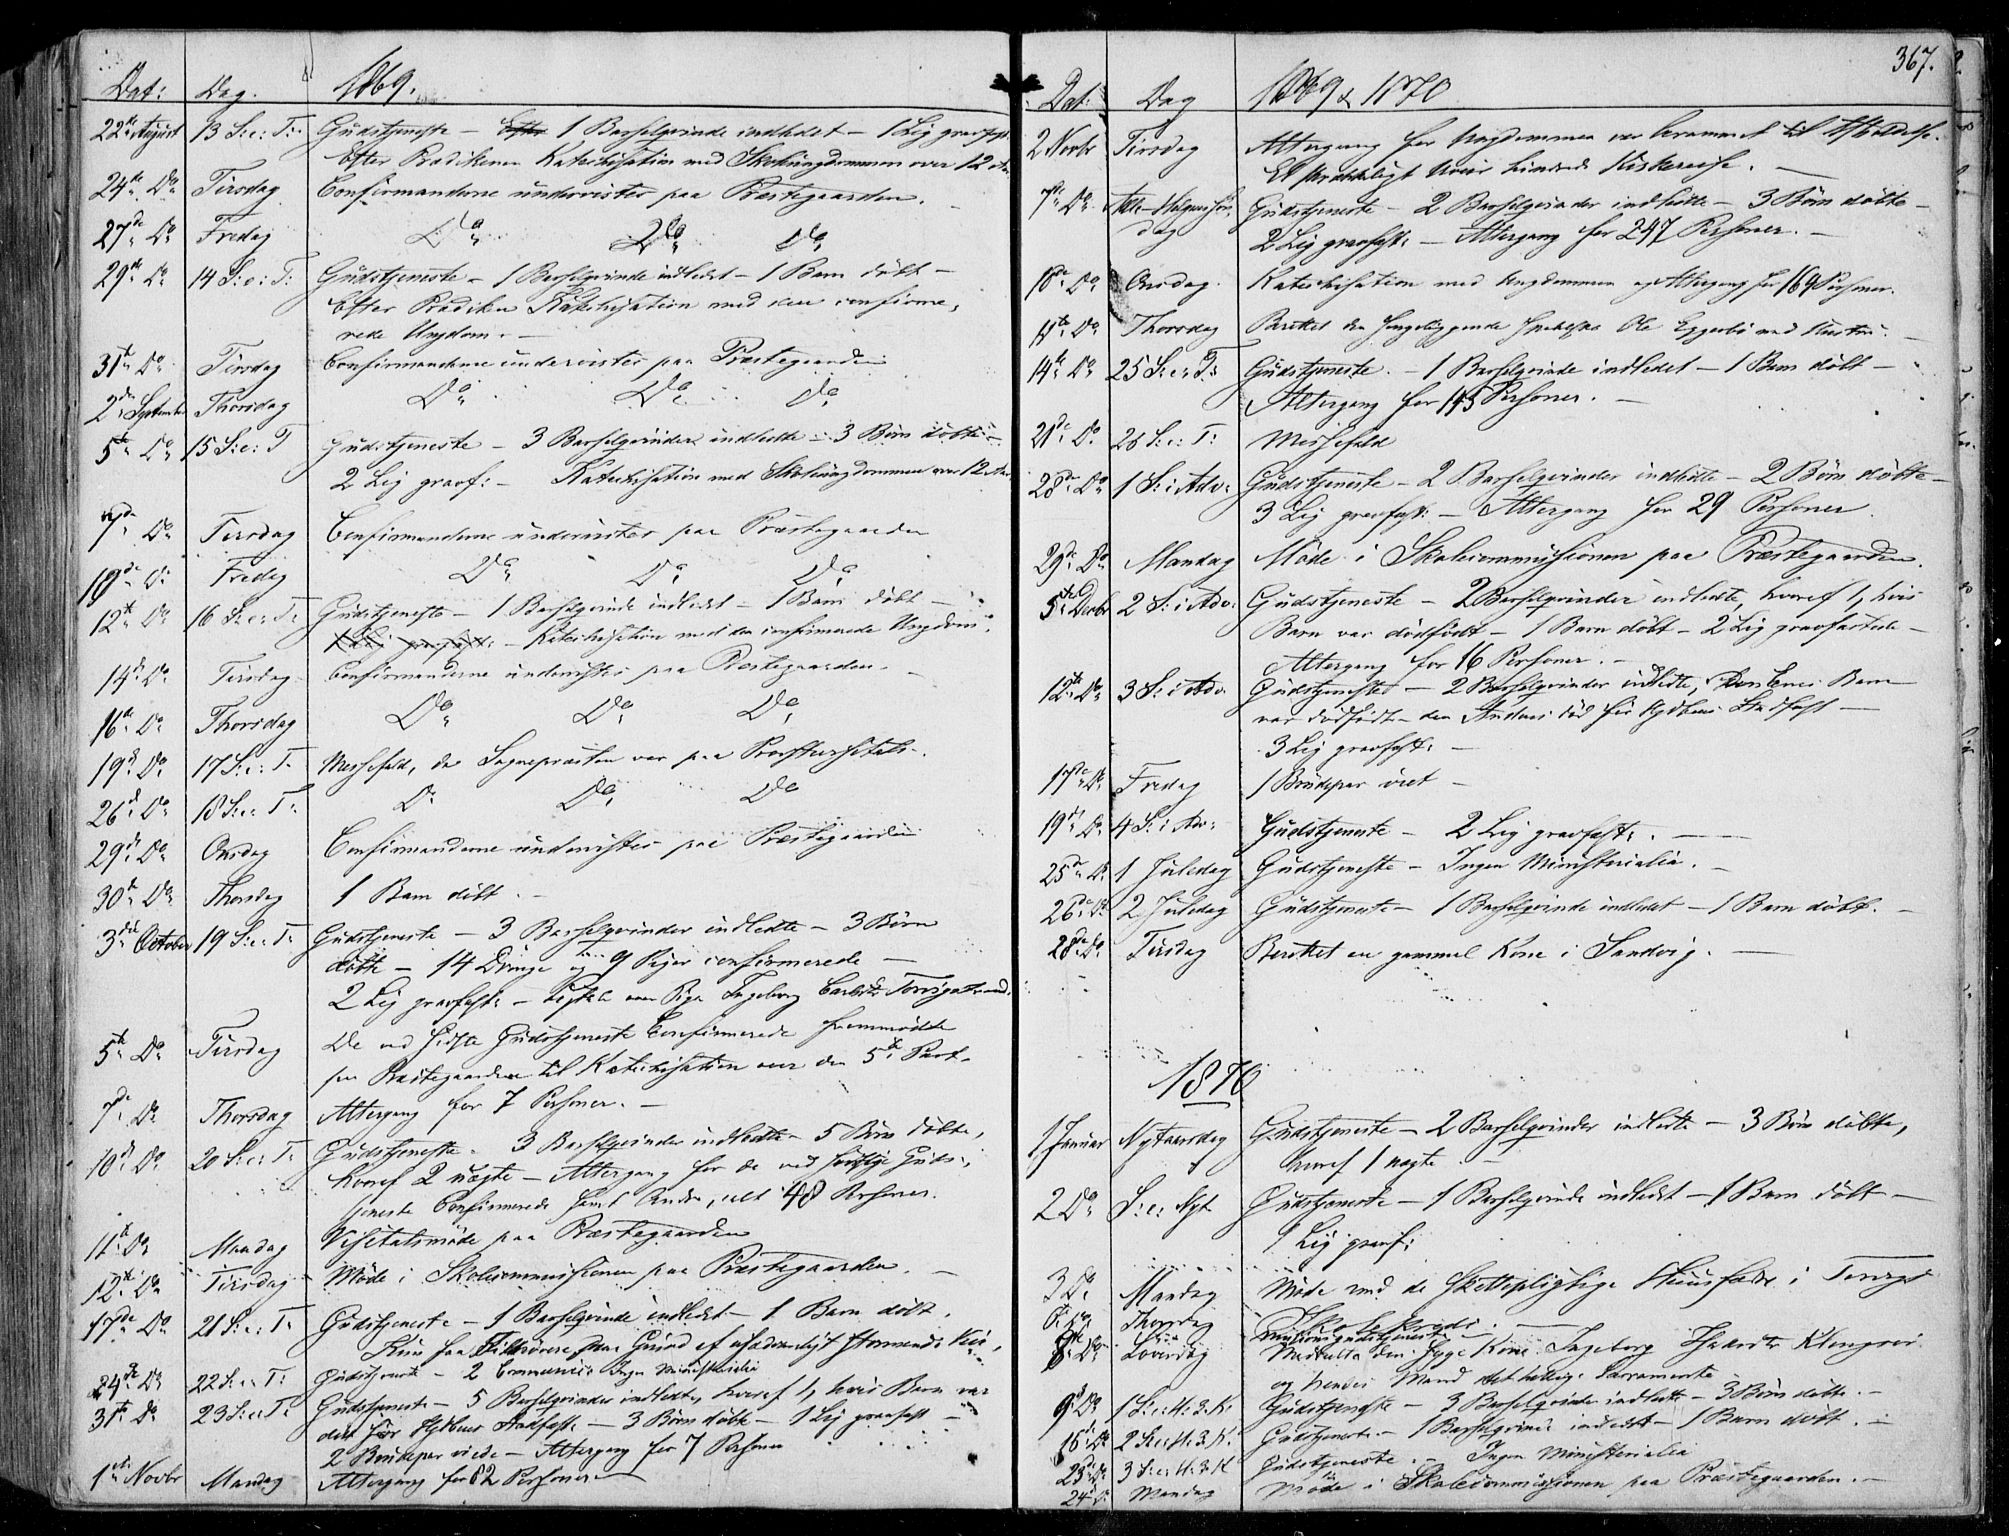 Dat: Dag. 1869.
22de August 13 S: e: T: Gudstjeneste – 1 Barselqvinde indledet – 1 Lig gravfæst.
Efter Prædikenen Katechisation med Skoleungdommen over 12 Aar.
24de Do Tirsdag Confirmanderne undervistes paa Præstegaarden.
27de Do Fredag Do Do Do
29de Do 14 S: e: T: Gudstjeneste – 1 Barselqvinde indledet – 1 Barn døbt –
Efter Prædiken Katechisation med den confirme-
rede Ungdom. –
31te Do Tirsdag Confirmanderne undervistes paa Præstegaarden
2den September Thorsdag Do Do Do
5te Do 15 S: e: T Gudstjeneste – 3 Barselqvinder indledte – 3 Børn døbte –
2 Lig gravf: – Katechisation med Skoleungdommen over 12 Aar.
7de Do Tirsdag Confirmanderne undervistes paa Præstegaarden
10de Do Fredag Do Do Do
12te Do 16 S: e: T: Gudstjeneste – 1 Barselqvinde indledet – 1 Barn døbt –
1 Lig gravfæst: – Katechisation med den confirmerede Ungdom.
14de Do Tirsdag Confirmanderne undervistes paa Præstegaarden. –
16de Do Thorsdag Do Do Do
19de Do 17 S: e: T: Messefald, da Sognepræsten var paa
26de Do 18 S: e: T: Do Do Do
29de Do Onsdag Confirmanderne undervistes paa Præstegaarden
30te Do Thorsdag 1 Barn døbt. –
3die October 19 S: e: T: Gudstjeneste – 3 Barselqvinder indledte – 3 Børn
døbte – 14 Drenge og 9 Piger confirmerede –
2 Lig gravfæst: – over Pige Ingeborg
5te Do Tirsdag De ved sidste Gudstjeneste Confirmerede fremmødte
paa Præstegaarden til Katechisation over den 5te Part.
7de Do Thorsdag Altergang for 7 Personer. –
10de Do 20 S: e: T: Gudstjeneste. 3 Barselqvinder indledte – 5 Børn døbte,
hvoraf 2 uægte – Altergang for de ved forrige Guds-
tjeneste Confirmerede samt Andre, alt 48 Personer.
11te Do Mandag Visitatsmøde paa Præstegaarden
12te Do Tirsdag Møde i Skolecommissionen paa Præstegaarden. –
17de Do 21 S: e: T: Gudstjeneste – 1 Barselqvinde indledet – 1 Barn døbt.
Kun faa Tilhørere paa Grund af usædvanligt stormende Veir.
24de Do 22 S: e: T: Gudstjeneste – 2 Ingen Ministerialia
31te Do 23 S: e: T: Gudstjeneste – 5 Barselqvinder indledte, hvoraf 1, hvis Barn var
død før Hjdbens Stadfæst. – 3 Børn døbte – 1 Lig gravfæst –
2 Brudepar viede – Altergang for 7 Personer
1ste Novbr Mandag Altergang for 82 Personer –
367.
Dat: Dag 1869 & 1870
2 Novbr Tirsdag Altergang for Ungdommen var berammet til Afholdelse.
Et Uveir hindrede Kirkereise. –
7de Do Alle-Helgens Søn-
dag
Gudstjeneste – 2 Barselqvinder indledte – 3 Børn døbte –
2 Lig gravfæst: – Altergang for 247 Personer. –
10de Do Onsdag. Katechisation med Ungdommen og Altergang for 169 Personer.
11te Do Thorsdag Berettet den sengeliggende Ole Eggerbø med Hustru. –
14de Do 25 S: e: T: Gudstjeneste. – 1 Barselqvinde indledet – 1 Barn døbt –
Altergang for 145 Personer. –
21de Do 26 S: e: T: Messefald
28de Do 1 S: i Adv: Gudstjeneste – 2 Barselqvinder indledte – 2 Børn døbte –
3 Lig gravfæst: – Altergang for 29 Personer
29de Do Mandag Møde i Skolecommissionen paa Præstegaarden.
5te Decbr 2 S: i Adv: Gudstjeneste – 2 Barselqvinder indledte, hvoraf 1, hvis
Barn var dødfødt – 1 Barn døbt – 2 Lig gravfæstede –
Altergang for 16 Personer. –
12te Do 3 S: i Adv: Gudstjeneste – 2 Barselqvinder indledte, Den Enes Barn
var dødfødt – den Andens død før Hjdbens Stadfæst –
3 Lig gravfæst: –
17de Do Fredag 1 Brudepar viet –
19de Do 4 S: i Adv: Gudstjeneste – 2 Lig gravfæst: . –
25de Do 1 Juledag Gudstjeneste – Ingen Ministerialia. –
26de Do 2 Juledag Gudstjeneste – 1 Barselqvinde indledet – 1 Barn døbt. –
28de Do Tirsdag Berettet en gammel Kone i Sandvig. –
1870
1 Januar Nytaarsdag Gudstjeneste – 2 Barselqvinder indledte – 3 Børn døbte,
hvoraf 1 uægte. –
2 Do S: e: Nyt Gudstjeneste – 1 Barselqvinde indledet – 1 Barn døbt –
1 Lig gravf:
3 Do Mandag Møde med de skattepligtige Huusfædre i
Skolekreds. –
6te Do Thorsdag Missionsgudstjeneste –
8de Do Løverdag Meddeelte den syge Kone Ingeborg
og hendes Mand det hellige Sacramente
9de Do 1 S: e: H: 3. K. Gudstjeneste – 3 Barselqvinder indledte – 3 Børn døbte. –
16de Do 2 S: e: H: 3. K. Gudstjeneste. – 1 Barselqvinde indledet – 1 Barn døbt. –
23de Do 3 S: e: H: 3. K Gudstjeneste. – Ingen Ministerialia
24de Do Mandag Møde i Skolecommissionen paa Præstegaarden. –